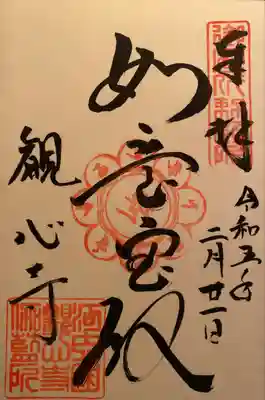 奉拝
令和五年
二月廿一日
如意宝殿
觀心寺